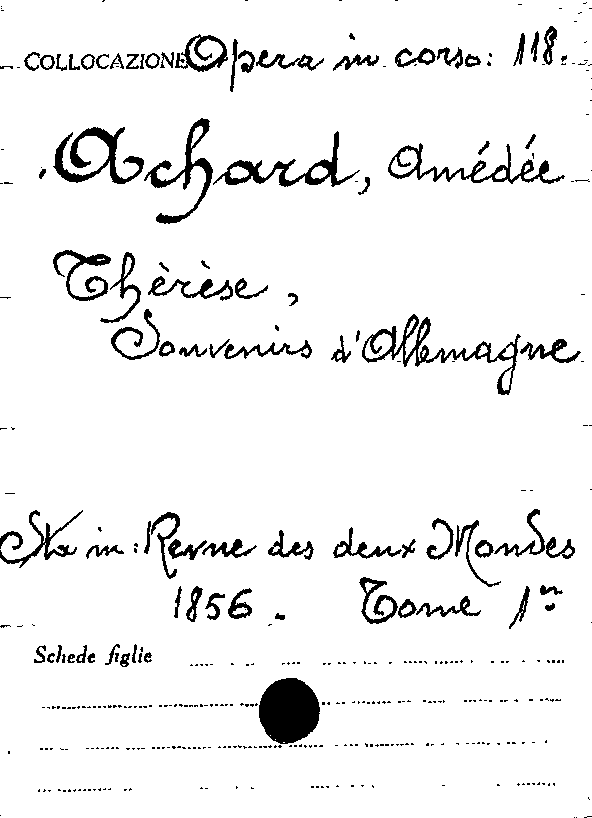 COLLOCAZIONE Opera in corso: 118.
Achard, Amédée
Thérèse,
Souvenirs d'Allemagne
Sta in: Revue des deux Mondes
1856. Tome 1er
Schede figlie